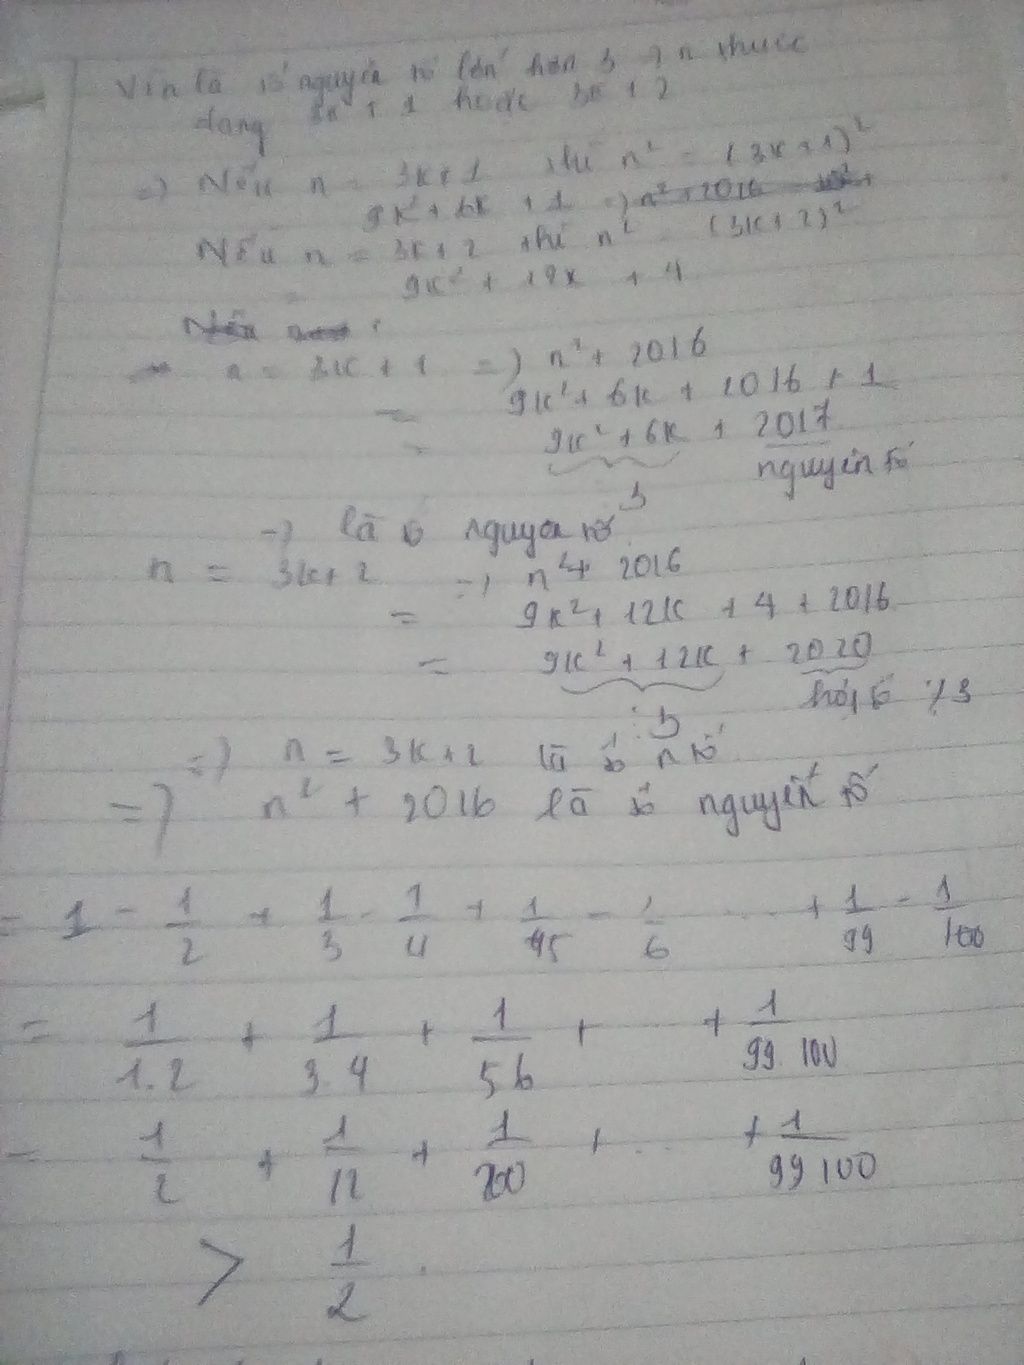 Vì n là số nguyên tố lớn hơn 3 => n thuộc
dạng 3k + 1 hoặc 3k + 2
=> Nếu n = 3k+1 thì n² = (3k+1)²
9k² + 6k + 1 => n² + 2016
Nếu n = 3k+2 thì n² = (3k+2)²
= 9k² + 12k + 4
Nếu
n = 3k + 1 => n² + 2016
= 9k² + 6k + 2016 + 1
= 9k² + 6k + 2017
3 nguyên tố
=> là số nguyên tố
n = 3k+2 => n² + 2016
= 9k² + 12k + 4 + 2016
= 9k² + 12k + 2020
⋮ 3 hợp số ⋮̸ 3
=> n = 3k+2 là số n tố
=> n² + 2016 là số nguyên tố
= 1 - 1/2 + 1/3 - 1/4 + 1/5 - 1/6 ... + 1/99 - 1/100
= 1/1.2 + 1/3.4 + 1/5.6 + ... + 1/99.100
= 1/2 + 1/12 + 1/200 + ... + 1/99.100
> 1/2 .